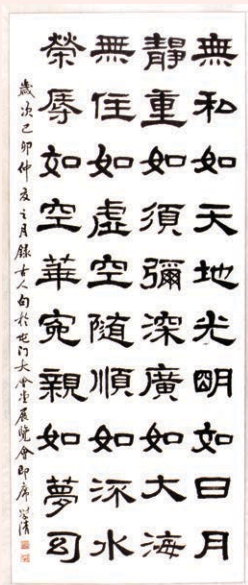 無私如天地光明如日月
靜重如須彌深廣如大海
無住如虛空隨順如流水
榮辱如空華冤親如夢幻
歲次己卯仲夏之月錄古人句於屯门大會堂展覽會即席